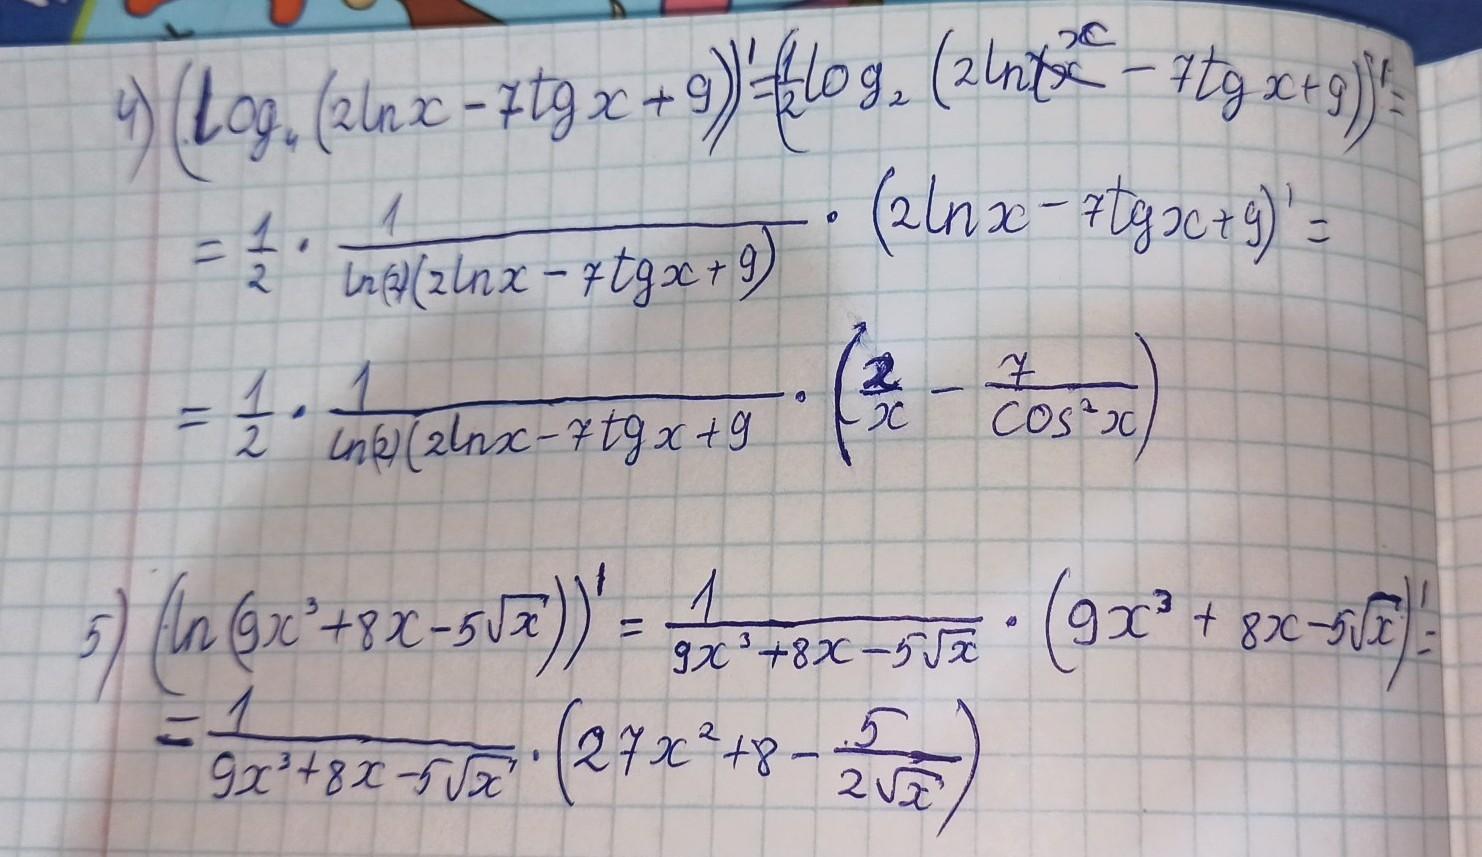 4) (log₄ (2lnx - 7tgx + 9))' = (1/2 log₂ (2lnx - 7tgx + 9))' =
= 1/2 · 1/(ln(2)(2lnx - 7tgx + 9)) · (2lnx - 7tgx + 9)' =
= 1/2 · 1/(ln(2)(2lnx - 7tgx + 9 · (2/x - 7/cos²x)
5) (ln(9x³ + 8x - 5√x))' = 1/(9x³ + 8x - 5√x) · (9x³ + 8x - 5√x)' =
= 1/(9x³ + 8x - 5√x) · (27x² + 8 - 5/(2√x))